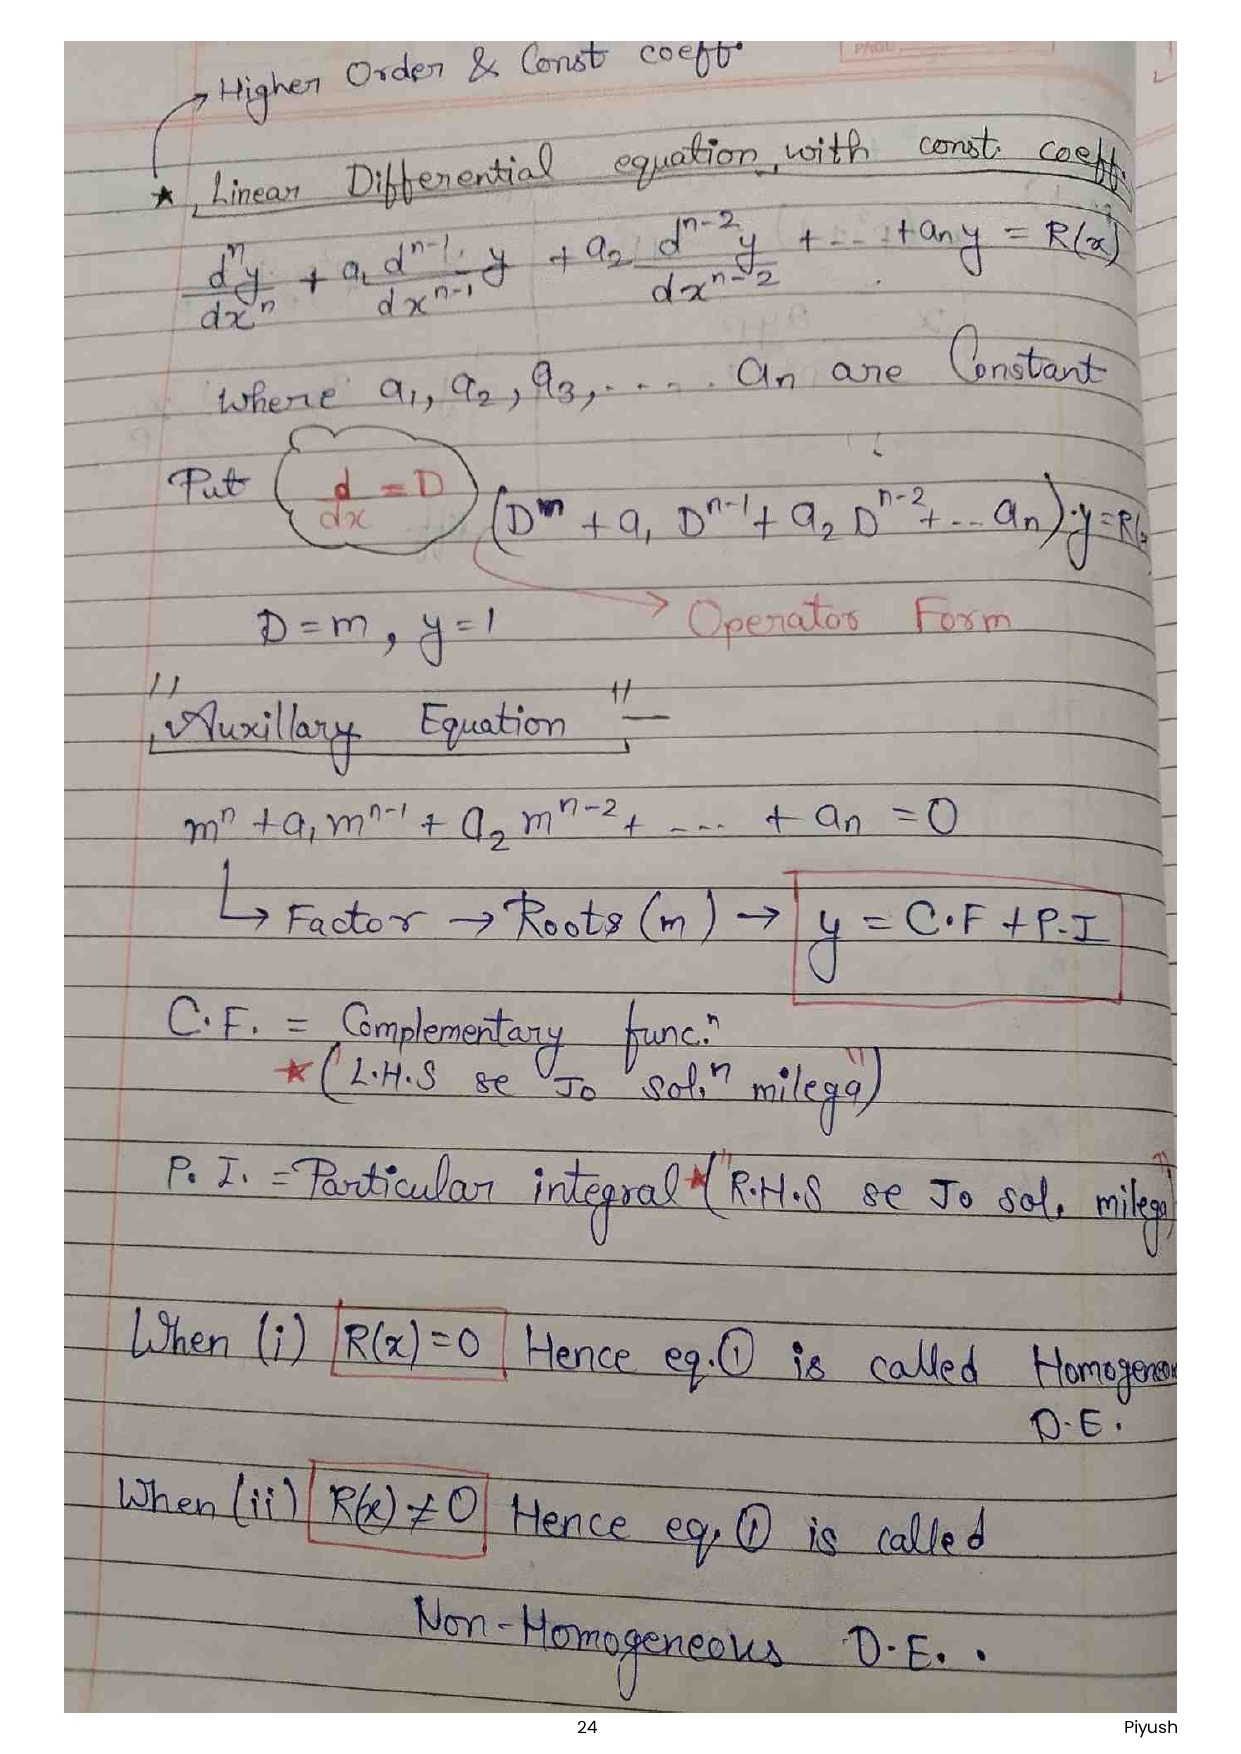 Higher Order & Const coeff.
★ Linear Differential equation with const. coeff.
dⁿy/dxⁿ + a₁ dⁿ⁻¹/dxⁿ⁻¹ y + a₂ dⁿ⁻²y/dxⁿ⁻² + ... + aₙy = R(x)
where a₁, a₂, a₃, ..... aₙ are Constant
Put d/dx = D (Dⁿ + a₁ Dⁿ⁻¹ + a₂ Dⁿ⁻² + ... aₙ).y = R(
D = m, y = 1 → Operator Form
"Auxillary Equation" —
mⁿ + a₁mⁿ⁻¹ + a₂mⁿ⁻² + .... + aₙ = 0
↳ Factor → Roots (m) → y = C.F + P.I
C.F. = Complementary func.ⁿ
★ ("L.H.S se Jo sol.ⁿ milega")
P. I. = Particular integral ★ ("R.H.S se Jo sol. milega"
When (i) R(x) = 0 Hence eq. ① is called Homogeneou
D.E.
When (ii) R(x) ≠ 0 Hence eq. ① is called
Non-Homogeneous D.E..
24
Piyush